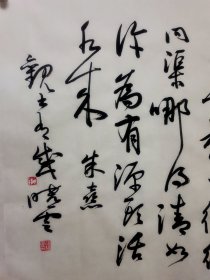 问渠哪得清如
许为有源头活
水来 朱熹
观书有感 晓云